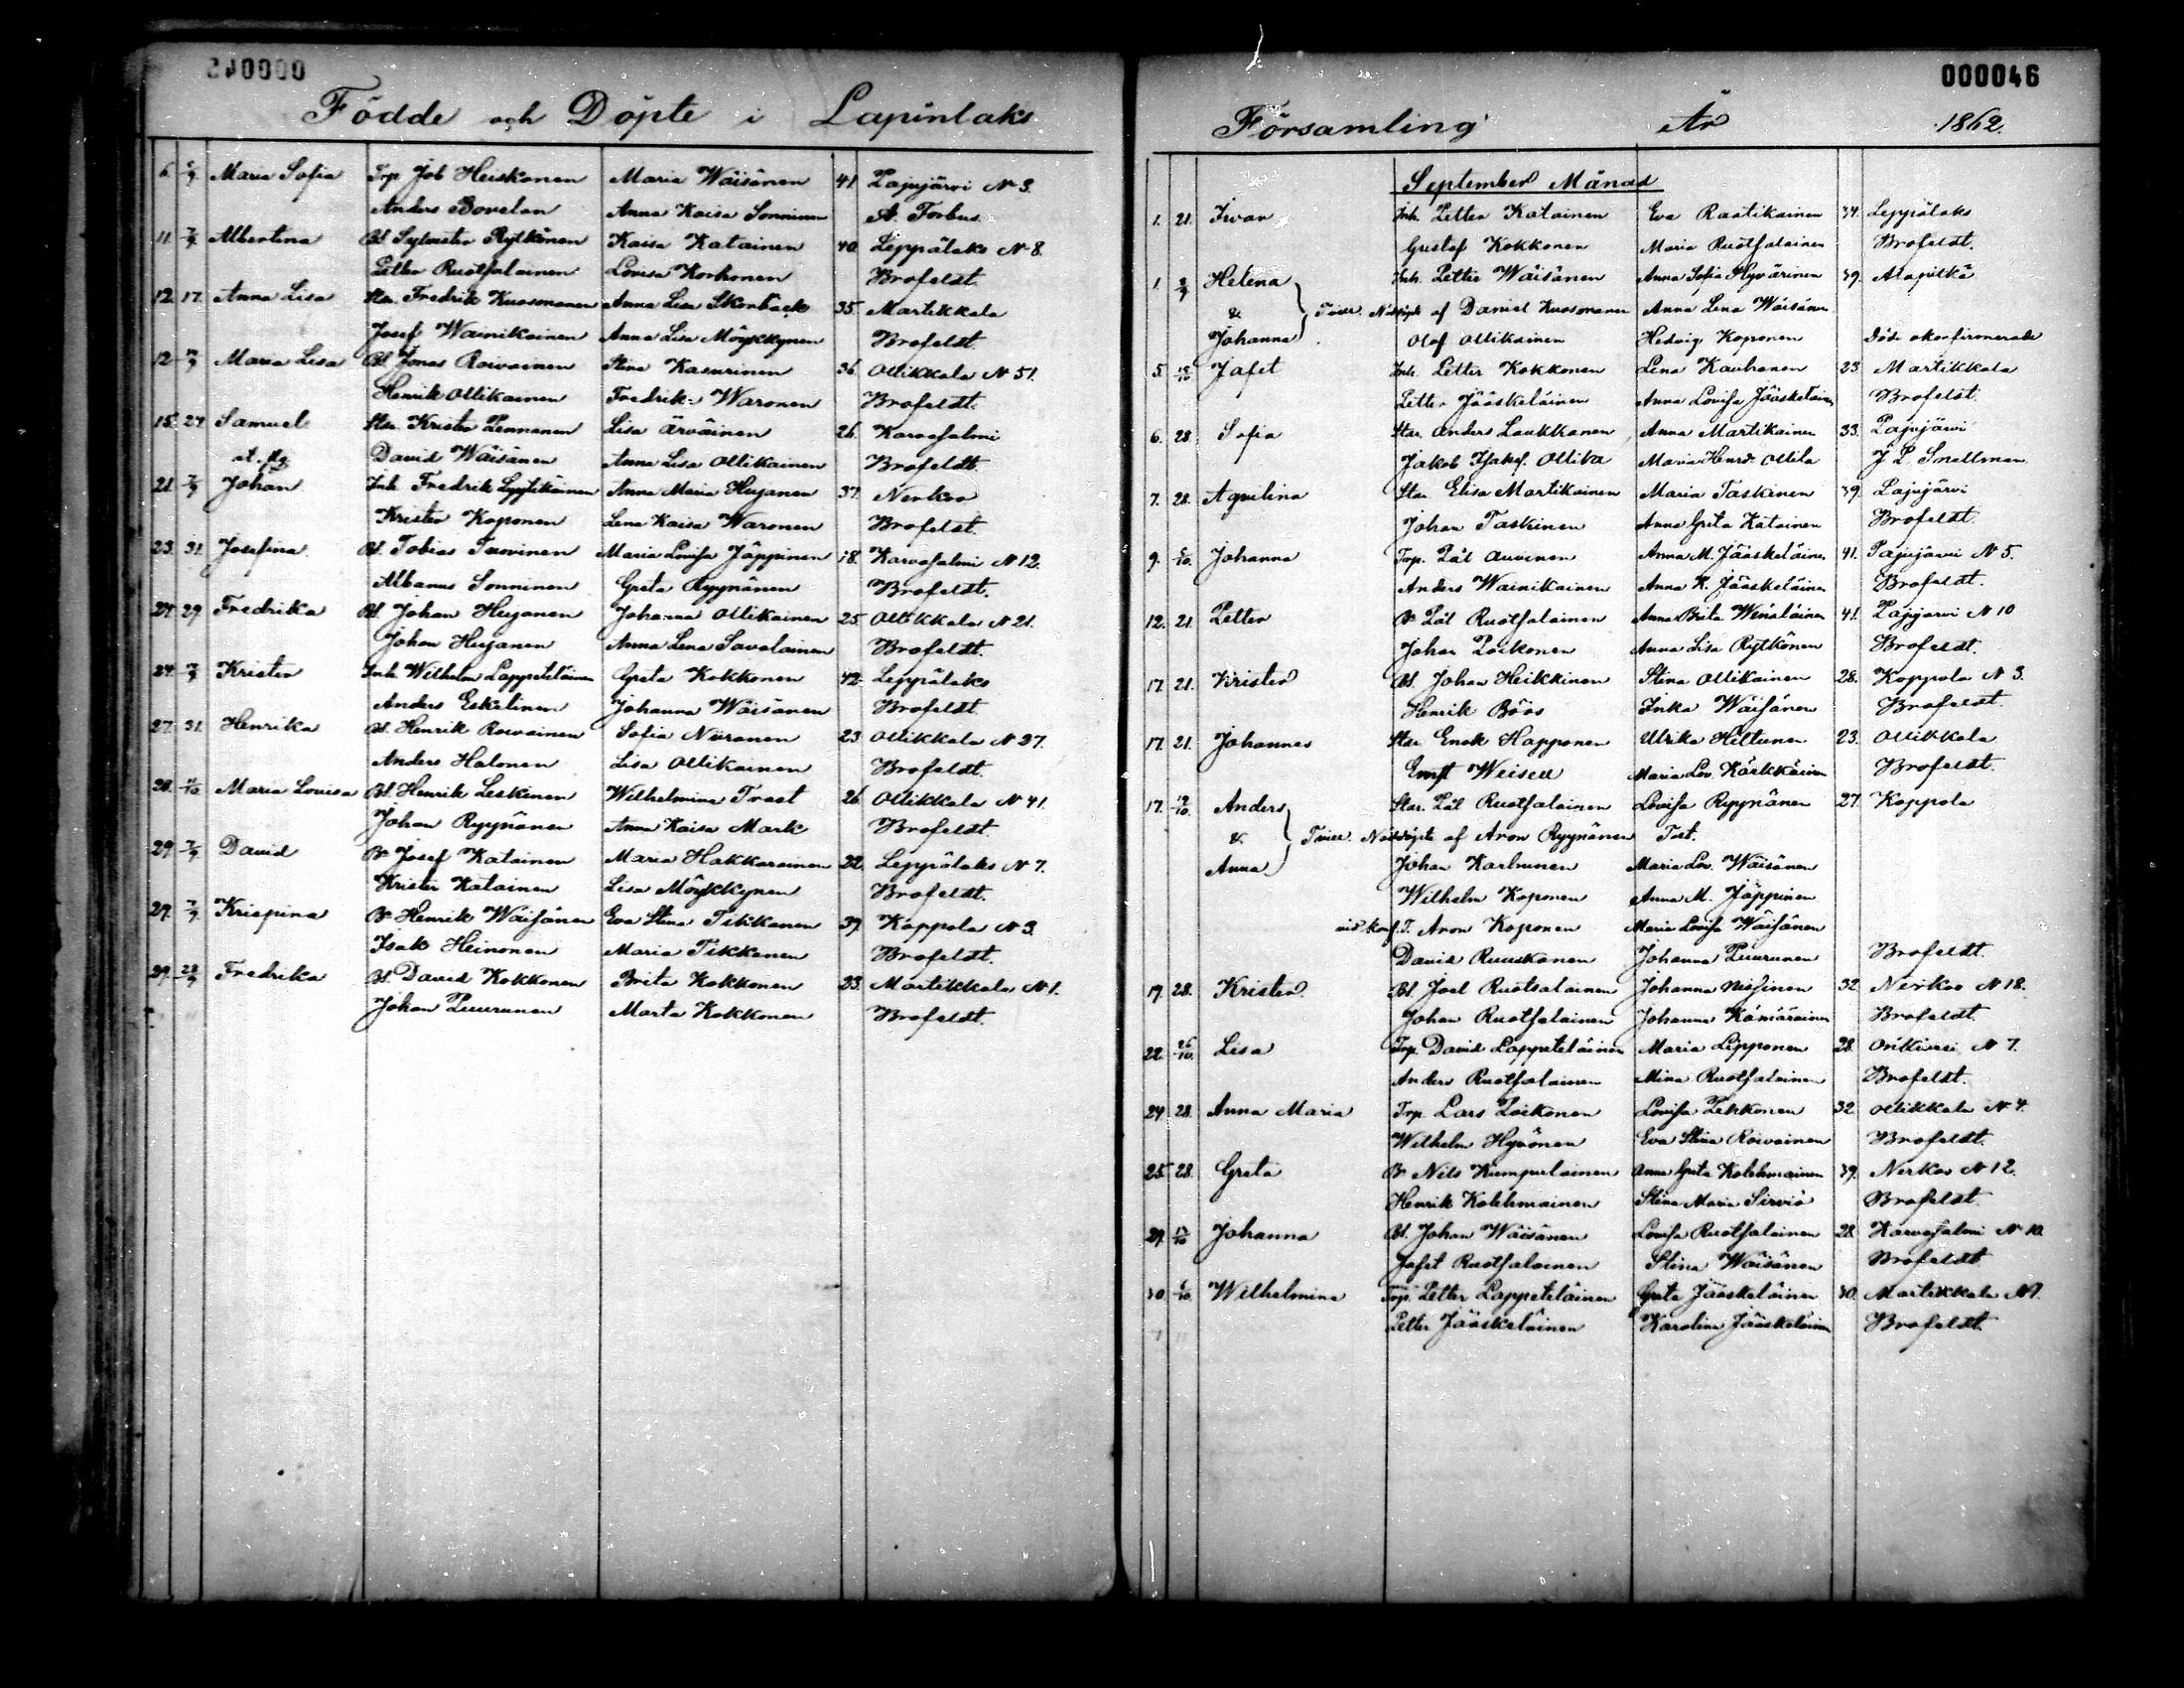 Födde och Döpte i Lapinlaks
6. 5/9. Maria Sofia Trp. Job Heiskanen Maria Wäisänen 41 Pajujärvi N 3.
Anders Bovelan Anna Kaisa Sonninen A. Forbus
11. 7/9 Albertina Bd Sylvester Rytkönen Kaisa Katainen 40. Leppälaks N 8.
Petter Ruotsalainen Lovisa Korhonen Brofeldt
12. 17. Anna Lisa Star. Fredrik Kuosmanen Anna Lisa Skonbäck 35. Martikkala
Josef Wainikainen Anna Lisa Möykkynen Brofeldt.
12 Maria Lisa Bd Jonas Roivainen Stina Kasurinen 36. Ollikkala N 51.
Henrik Ollikainen Fredrika Waronen Brofeldt.
15. 24 Samuel Star. Krister Pennanen Lisa Ärväinen 26. Karvasalmi
David Wäisänen Anna Lisa Ollikainen Brofeldt.
21. 7/9 Johan Inh. Fredrik Lyytikäinen Anna Maria Hujanen 37. Nerkoo
Krister Koponen Lena Kaisa Waronen Brofeldt.
23. 31. Josefina Bd. Tobias Tuovinen Maria Lovisa Jäppinen 18. Karvasalmi N 12.
Albanus Sonninen Greta Ryynänen Brofeldt.
24. 29 Fredrika Bd. Johan Hujanen Johanna Ollikainen 25. Ollikkala N 21.
Johan Hujanen Anna Lena Savolainen Brofeldt.
24. Krister Inh. Wilhelm Lappeteläinen Greta Kokkonen 42. Leppälaks
Anders Eskelinen Johanna Wäisänen Brofeldt
27. 31. Henrika Bd. Henrik Roivainen Sofia Niiranen 23 Ollikkala N 27.
Anders Halonen Lisa Ollikainen Brofeldt.
28. Maria Lovisa Bd. Henrik Leskinen Wilhelmina Trast 26. Ollikkala N 41.
Johan Ryynänen Anna Kaisa Mark Brofeldt.
29. 7/9. David Br Josef Katainen Maria Hakkarainen 22. Leppälaks N 7.
Krister Katainen Lisa Möykkynen Brofeldt.
29. 7/9. Krispina Br Henrik Wäisänen Eva Stina Tikkanen 39. Koppola N 3.
Isak Heinonen Maria Tikkanen Brofeldt.
29. 28/9 Fredrika Bd. David Kokkonen Brita Kokkonen 23. Martikkala N 1.
Johan Puurunen Marta Kokkonen Brofeldt.
000046
Församling År 1862.
September Månad
1. 21. Iwar Inh. Petter Katainen Eva Raatikainen 34. Leppälaks
Gustaf Kokkonen Maria Ruotsalainen Brofeldt.
1. Helena Inh. Petter Wäisänen Anna Sofia Hyvärinen 39. Alapitkä
& Tvill. Nöddöpte af Daniel Kuosmanen Anna Lena Wäisänen
Johanna Olof Ollikainen Hedvig Koponen Döde okonfirmerade
5. Jafet Inh. Petter Kokkonen Lena Kauhanen 23. Martikkala
Petter Jääskeläinen Anna Lovisa Jääskeläinen Brofeldt.
6. 28. Sofia Star. Anders Laukkanen Anna Martikainen 33. Pajujärvi
Jakob Ollila Maria Ollila J. L. Snellman
7. 28. Aqvilina Star. Elisa Martikainen Maria Taskinen 39. Pajujärvi
Johan Taskinen Anna Greta Katainen Brofeldt.
9. 5/10. Johanna Trp. Pål Auvinen Anna M. Jääskeläinen 41. Pajujärvi N 5.
Anders Wainikainen Anna K. Jääskeläinen Brofeldt.
12. 21. Petter Br Pål Ruotsalainen Anna Brita Wenäläinen 41. Pajujärvi N 10
Johan Poikonen Anna Lisa Rytkönen Brofeldt.
17. 21. Krister Bd. Johan Heikkinen Stina Ollikainen 28. Koppola N 3.
Henrik Böös Inka Wäisänen Brofeldt.
17. 21. Johannes Star. Enok Happonen Ulrika Hiltunen 23. Ollikkala
Ernst Weisell Maria Lov. Kärkkäinen Brofeldt.
17. 19/10. Anders Star. Pål Ruotsalainen Lovisa Ryynänen 27. Koppola
& Tvill. Nöddöpte af Aron Ryynänen Test.
Anna Johan Karhunen Maria Lov. Wäisänen
Wilhelm Koponen Anna M. Jäppinen
vid konf. T. Aron Koponen Maria Lovisa Wäisänen
David Ruuskanen Johanna Puurunen Brofeldt.
19. 28. Krister Bd. Joel Ruotsalainen Johanna Nissinen 32. Nerkoo N 18.
Johan Ruotsalainen Johanna Kämäräinen Brofeldt.
22. 26/10. Lisa Trp. David Lappeteläinen Maria Lipponen 28. Onkivesi N 7.
Anders Ruotsalainen Mina Ruotsalainen Brofeldt.
24 28. Anna Maria Trp. Lars Poikonen Lovisa Pekkonen 32. Ollikkala N 4.
Wilhelm Hyvönen Eva Stina Roivainen Brofeldt.
25 28. Greta Br Nils Kumpulainen Anna Greta Kolehmainen 39. Nerkoo N 12.
Henrik Kolehmainen Stina Maria Sirviö Brofeldt
29. Johanna Bd. Johan Wäisänen Lovisa Ruotsalainen 28. Karvasalmi N 10.
Jafet Ruotsalainen Stina Wäisänen Brofeldt
30. 6/10. Wilhelmina Trp. Petter Lappeteläinen Greta Jääskeläinen 30. Martikkala
Petter Jääskeläinen Karolina Jääskeläinen Brofeldt.